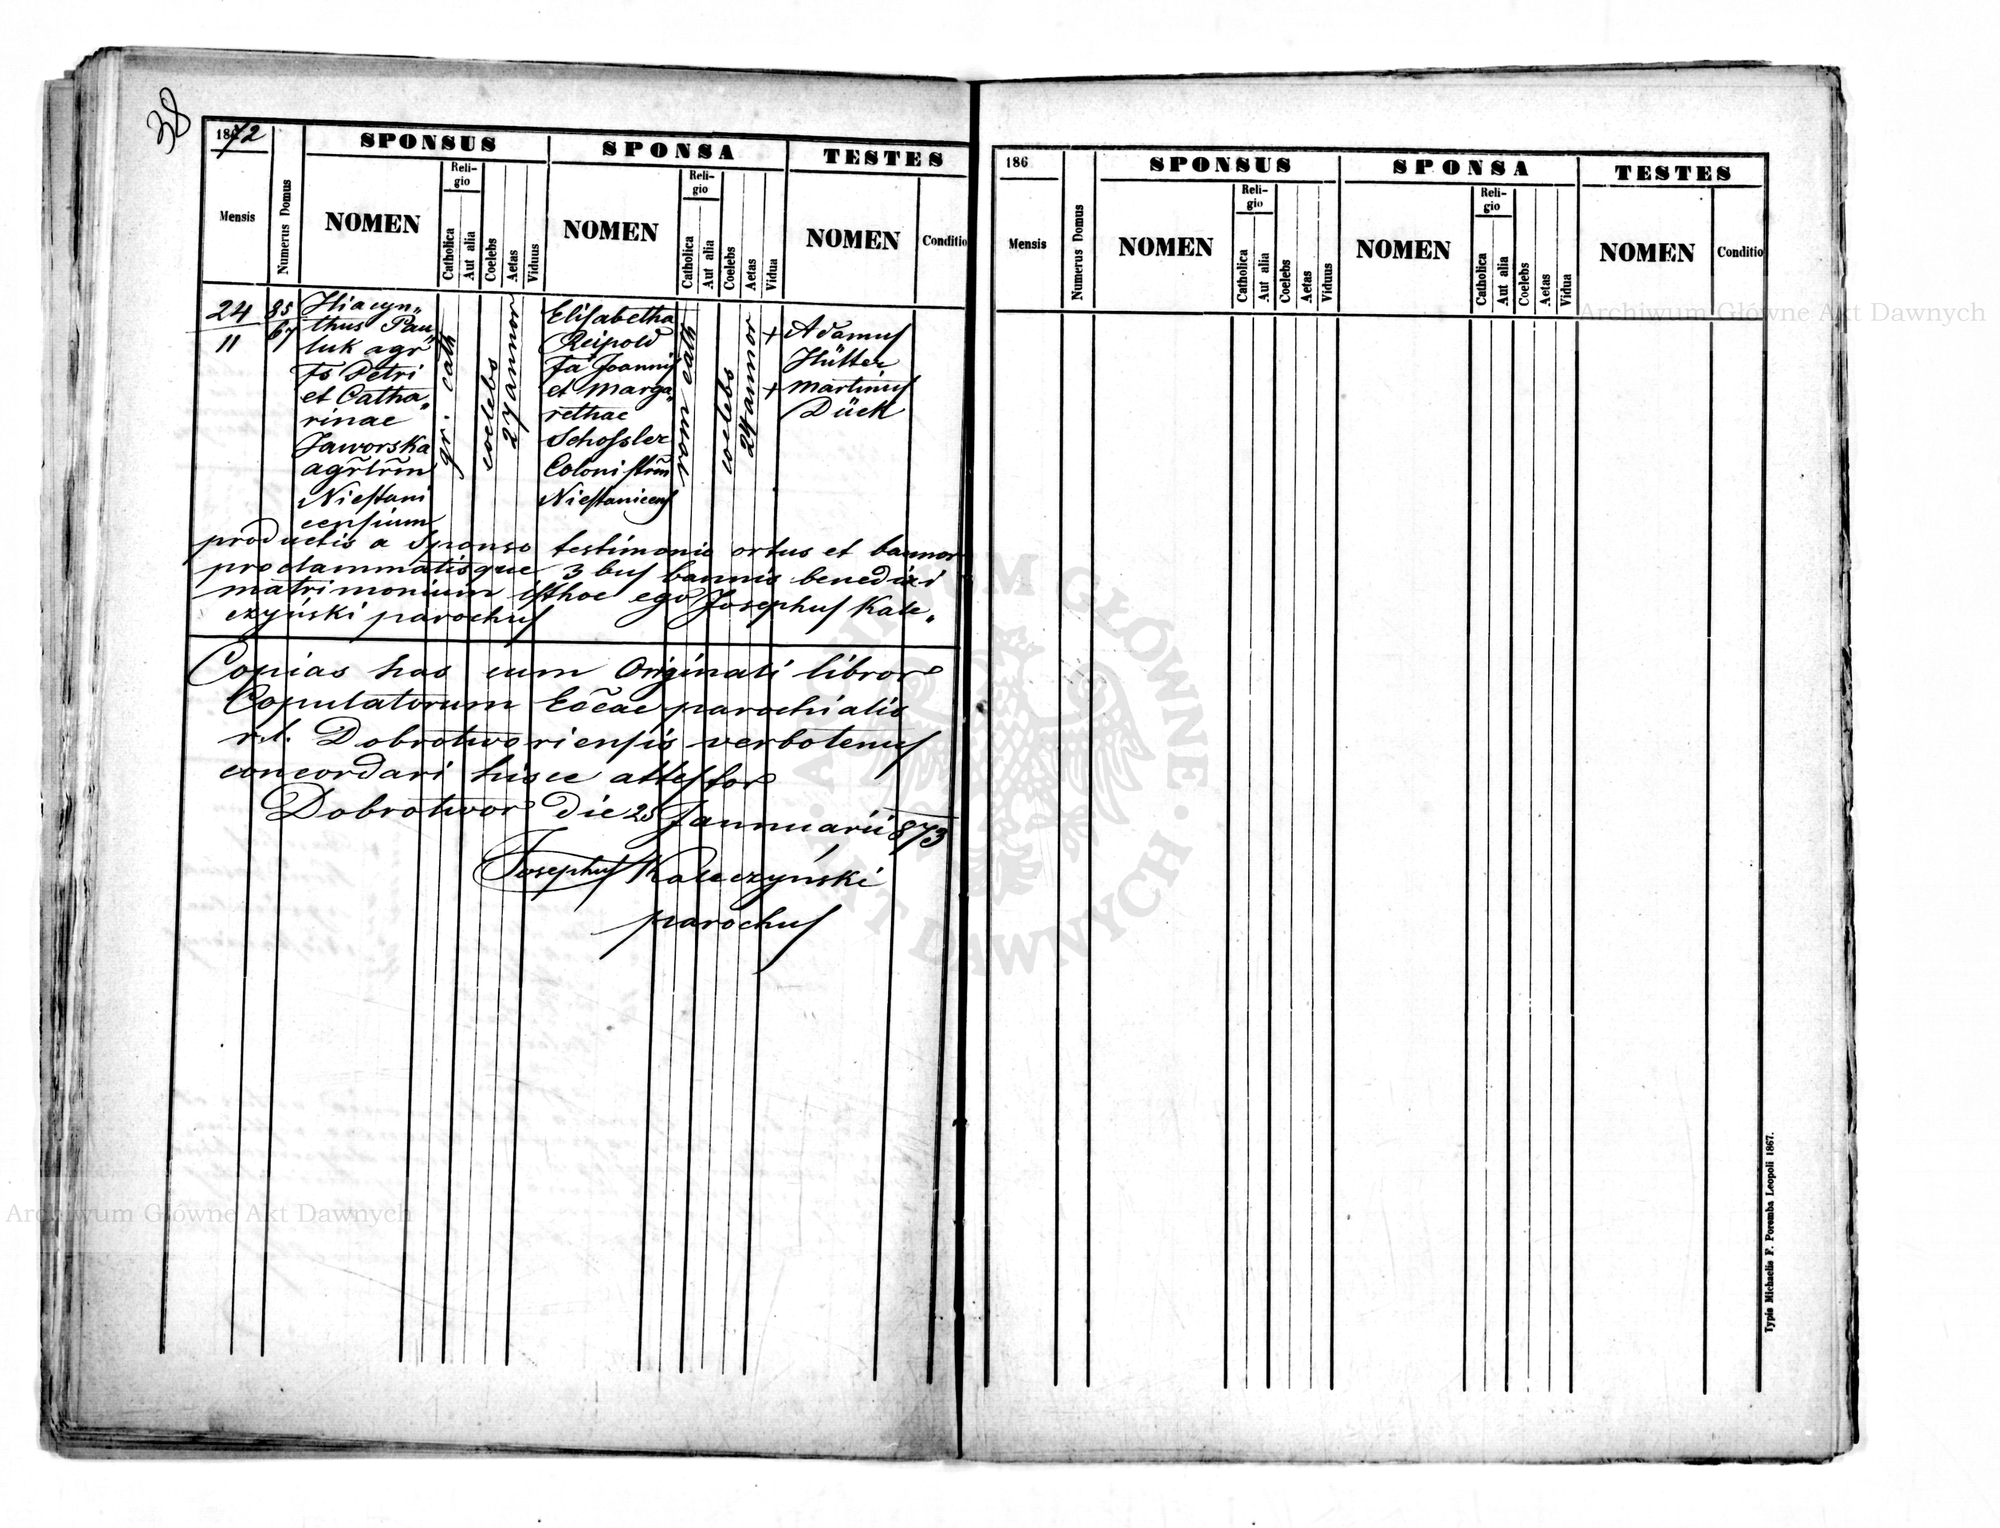 38
1872
SPONSUS
SPONSA
TESTES
Mensis
Numerus Domus
NOMEN
Reli-
gio
Catholica
Aut alia
Coelebs
Aetas
Viduus
NOMEN
Reli-
gio
Catholica
Aut alia
Coelebs
Aetas
Vidua
NOMEN
Conditio
24
11
85
67
Hiacyn„
thus Pau„
luk agr
fs Petri
et Catha„
rinae
Jaworska
agrlrm
Niestani
censium
gr. cath
coelebs
27 annor
Elisabetha
Reipold
fa Joannis
et Marga„
rethae
Schossler
Colonistrm
Niestanicens
rom cath
coelebs
24 annor
+ Adamus
Hütter
+ Martinus
Dück
productis a Sponso testimonio ortus et bannor
proclammatisque 3 bus bannis benedixi
matrimonium isthoc ego Josephus Kale„
czyński parochus
Copias has cum Originali libror
Copulatorum Ecceae parochialis
r.l. Dobrotworiensis verbotenus
concordari hisce attestor
Dobrotwor die 25 Jannuarii 873
Josephus Kaleczyński
parochus
186
SPONSUS
SPONSA
TESTES
Mensis
Numerus Domus
NOMEN
Reli-
gio
Catholica
Aut alia
Coelebs
Aetas
Viduus
NOMEN
Reli-
gio
Catholica
Aut alia
Coelebs
Aetas
Vidua
NOMEN
Conditio
Typis Michaelis F. Poremba Leopoli 1867.
Archiwum Główne Akt Dawnych
Archiwum Główne Akt Dawnych
ARCHIWUM GŁÓWNE AKT DAWNYCH